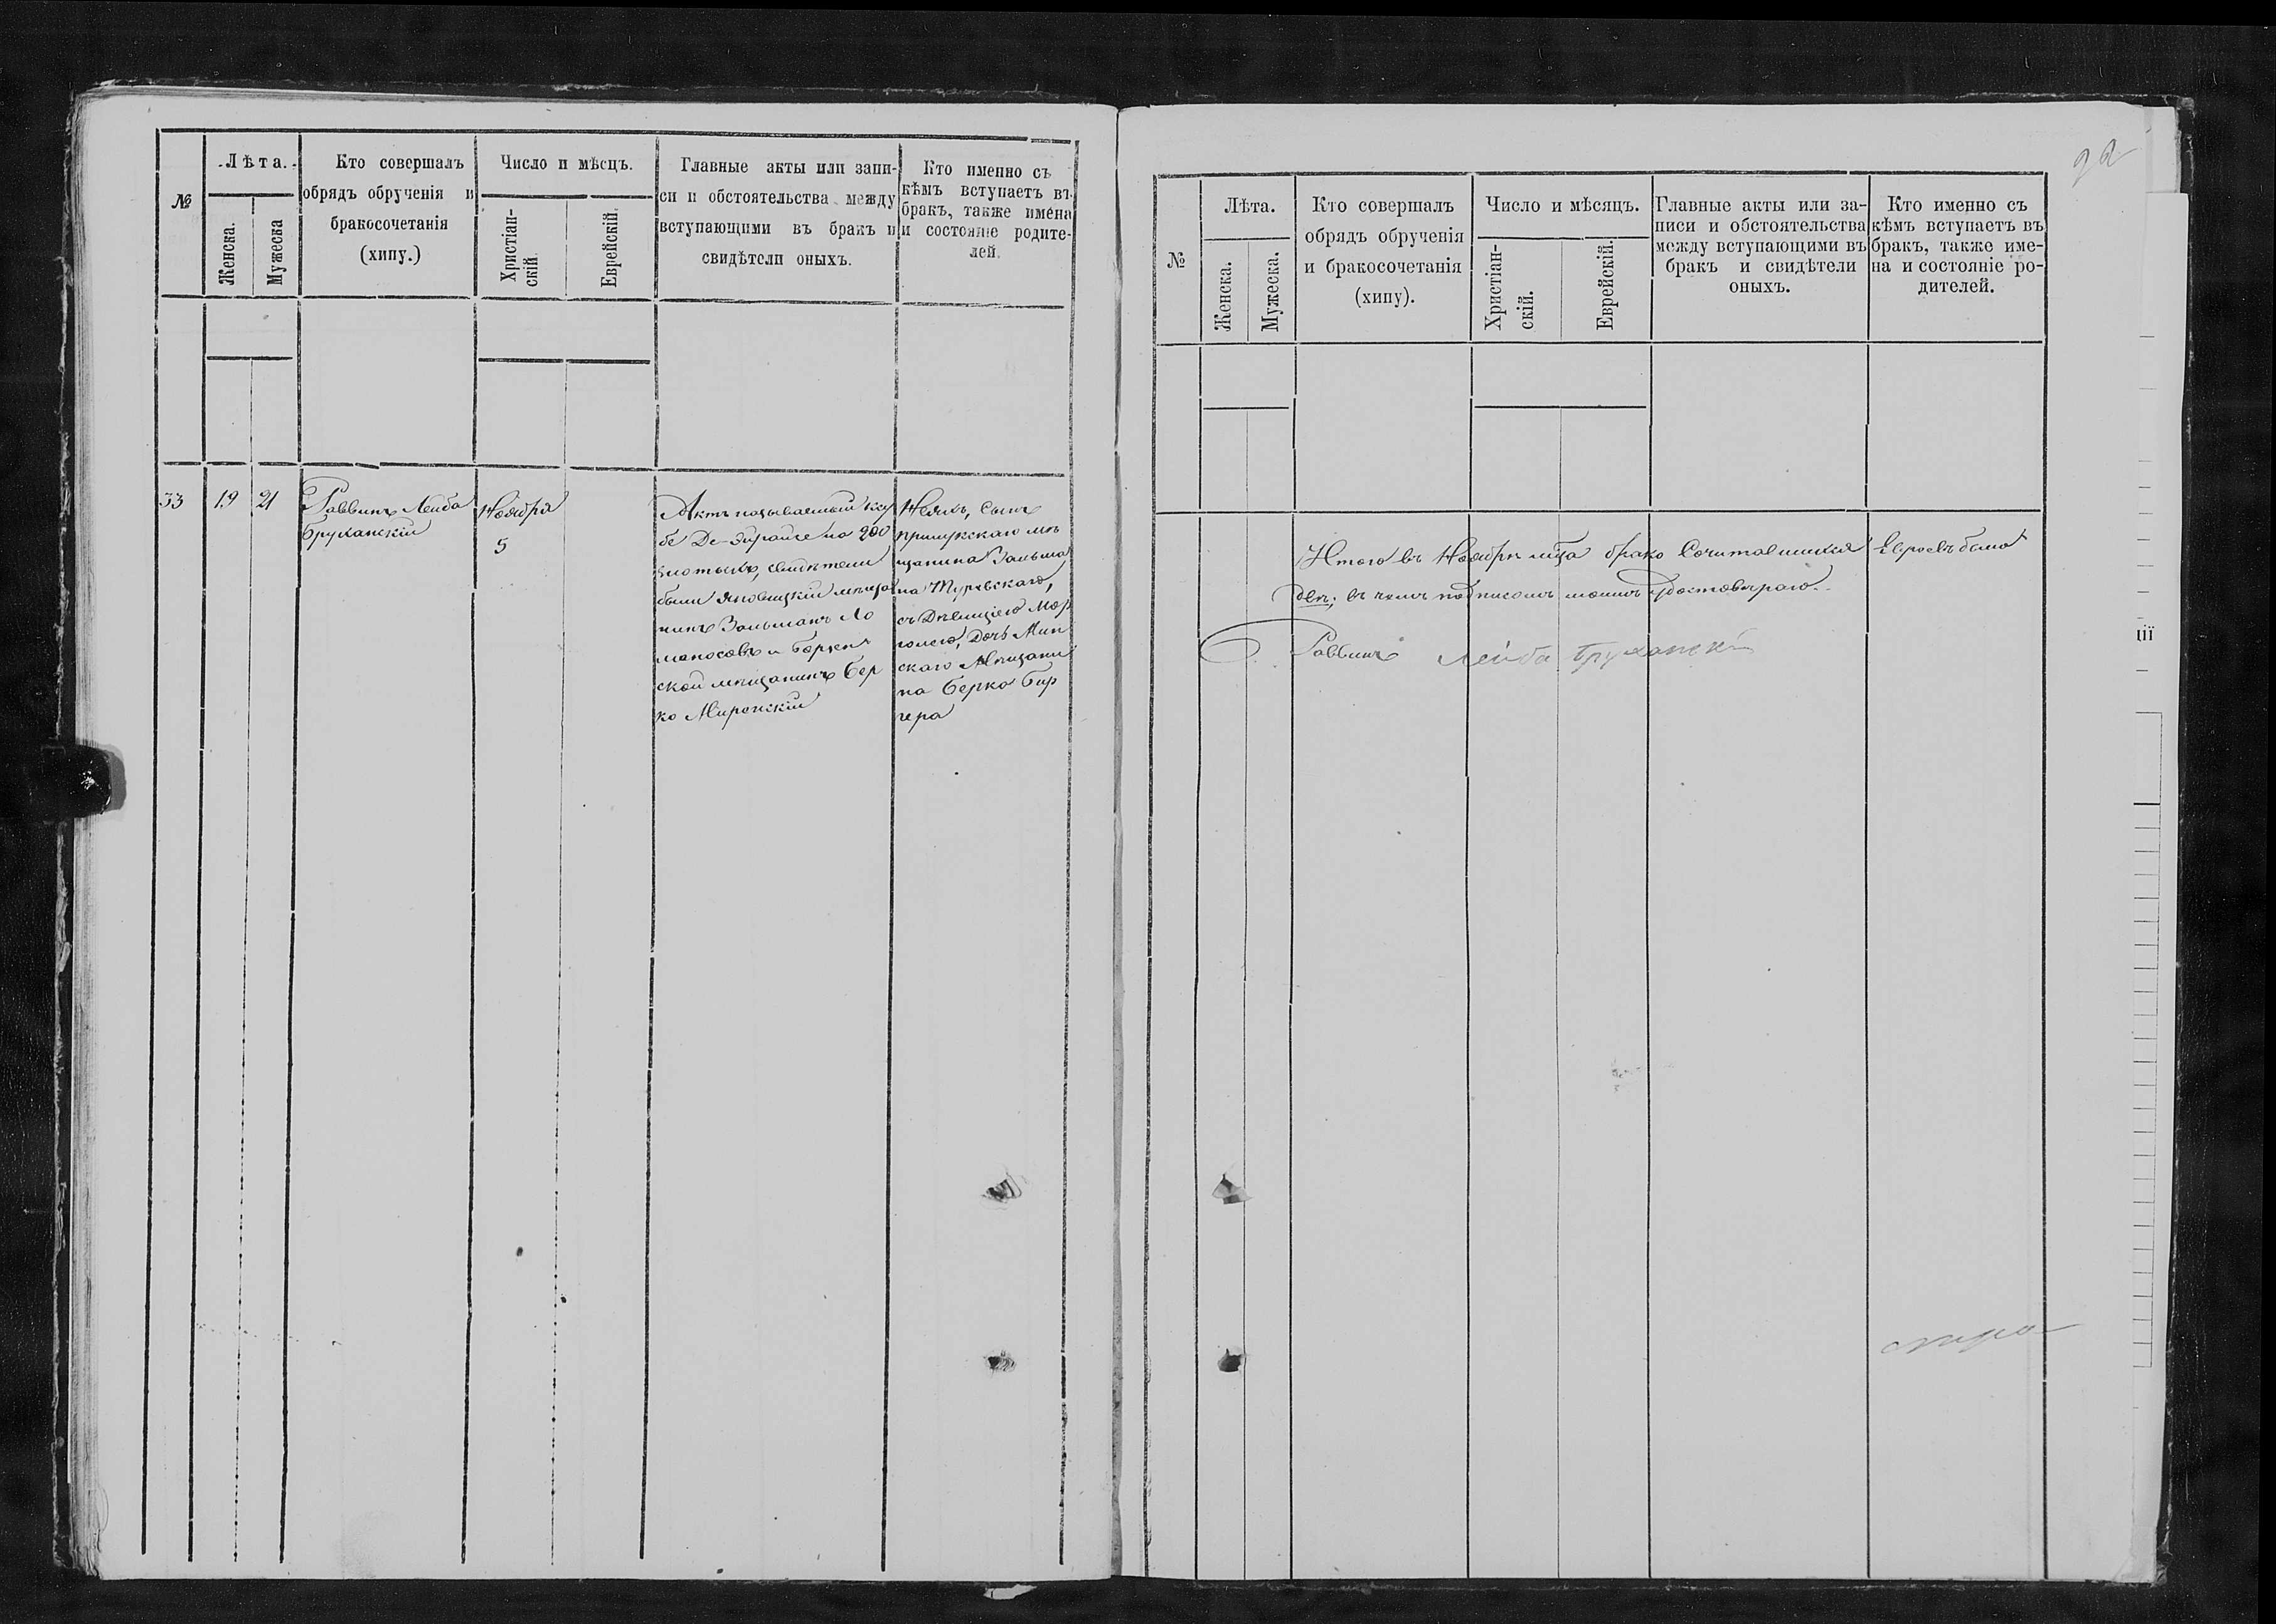 №
Лѣта.
Женска.
Мужеска
Кто совершалъ
обрядъ обрученія и
бракосочетанія
(хипу.)
Число и мѣсцъ.
Христіан-
скій.
Еврейскій.
Главные акты или запи-
си и обстоятельства между
вступающими въ бракъ и
свидѣтели оныхъ.
Кто именно съ
кѣмъ вступаетъ въ
бракъ, также имена
и состояніе родите-
лей.
33
19
21
Раввинъ Лейба
Бруханскій
Ноября
5
Актъ называемый ксу
бе Де-Эйрайсе на 200
злотыхъ, свидѣтели
были Яновицкій мѣща
нинъ Зальманъ Ло
маносовъ и
ской мѣщанинъ Бер
ко Миренскій
сынъ
мѣ
щанина Зальма
на Туровскаго,
съ Дѣвицею Мар
дочь Мин
скаго Мѣщани
на Берка Бир
гера
92
№
Лѣта.
Женска.
Мужеска.
Кто совершалъ
обрядъ обрученія
и бракосочетанія
(хипу).
Число и мѣсяцъ.
Христіан-
скій.
Еврейскій.
Главные акты или за-
писи и обстоятельства
между вступающими въ
бракъ и свидѣтели
оныхъ.
Кто именно съ
кѣмъ вступаетъ въ
бракъ, также име-
на и состояніе ро-
дителей.
Итого въ Ноябрѣ мца брако Сочитавшихся Евреевъ было
двѣ; въ чемъ подписомъ моимъ удостовѣраю.
Раввинъ Лейба Бруханскій
ції